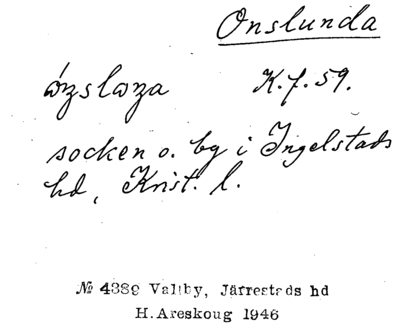 Onslunda
K.f. 59.
socken o. by i Ingelstads
hd, Krist. l.
№ 4389 Vallby, Järrestads hd
H.Areskoug 1946